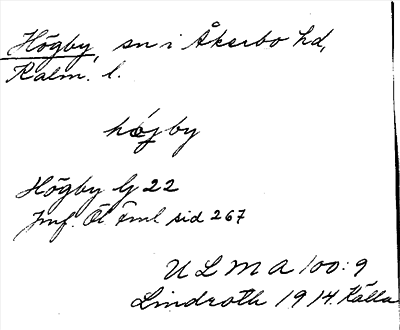 Högby, sn i Åkerbo hd,
Kalm. l.
högby
Högby lj 22
Jmf. Öl. saml sid 267
U L M A 100:9
Lindroth 1914. Källa